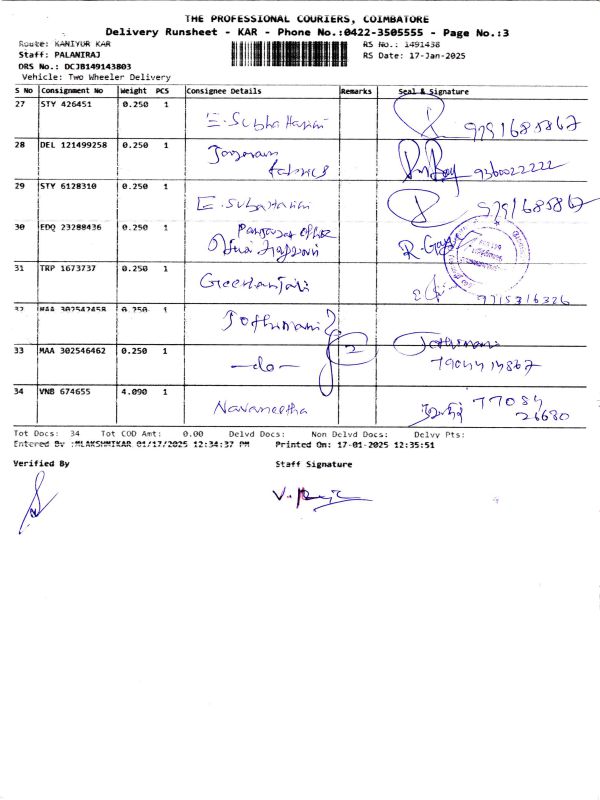 THE PROFESSIONAL COURIERS, COIMBATORE
Delivery Runsheet - KAR - Phone No.:0422-3505555 - Page No.:3
Route: KANIYUR KAR RS No.: 1491438
Staff: PALANIRAJ RS Date: 17-Jan-2025
DRS No.: DCJB149143803
Vehicle: Two Wheeler Delivery
S No Consignment No Weight PCS Consignee Details Remarks Seal & Signature
27 STY 426451 0.250 1 E. Subha Harini 9791685867
28 DEL 121499258 0.250 1 9360022222
29 STY 6128310 0.250 1 E. Subaharini 9791685867
30 EDQ 23288436 0.250 1
31 TRP 1673737 0.250 1 Geethanjali 9715716326
32 MAA 302542458 0.250 1 Jothimani 2 Jothimani
33 MAA 302546462 0.250 1 —do—
34 VNB 674655 4.090 1 Navaneetha 77084
26680
Tot Docs: 34 Tot COD Amt: 0.00 Delvd Docs: Non Delvd Docs: Delvy Pts:
Entered By :MLAKSHMIKAR 01/17/2025 12:34:37 PM Printed On: 17-01-2025 12:35:51
Verified By Staff Signature